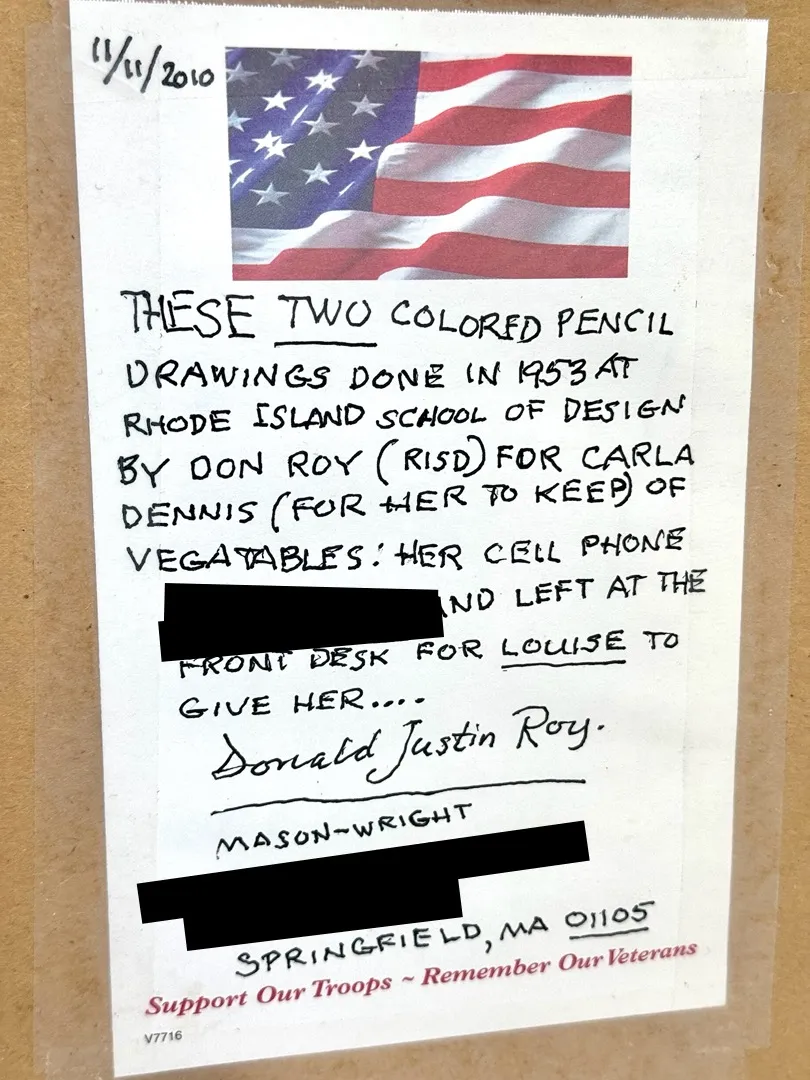 11/11/2010
THESE TWO COLORED PENCIL
DRAWINGS DONE IN 1953 AT
RHODE ISLAND SCHOOL OF DESIGN
BY DON ROY (RISD) FOR CARLA
DENNIS (FOR HER TO KEEP) OF
VEGATABLES: HER CELL PHONE
AND LEFT AT THE
FRONT DESK FOR LOUISE TO
GIVE HER....
Donald Justin Roy.
MASON~WRIGHT
SPRINGFIELD, MA 01105
Support Our Troops ~ Remember Our Veterans
V7716